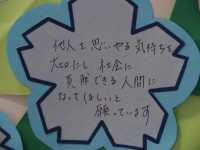 他人を思いやる気持ちを
大切にし、社会に
貢献できる人間に
なってほしいと
願っています